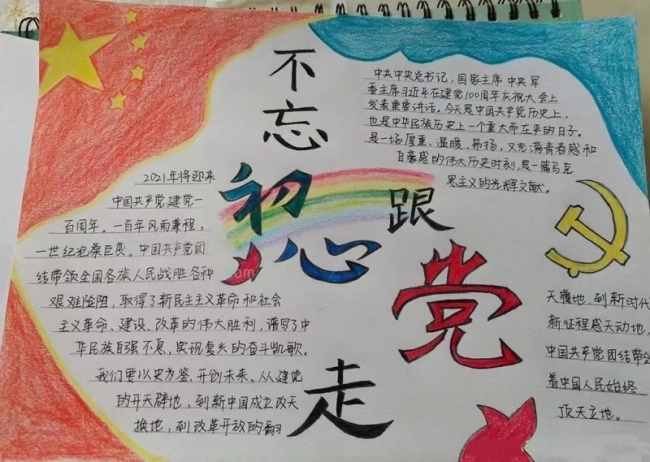 不忘
初心
跟
党
走
2021年将迎来
中国共产党建党一
百周年。一百年风雨兼程,
一世纪沧桑巨变。中国共产党团
结带领全国各族人民战胜各种
艰难险阻,取得了新民主主义革命和社会
主义革命、建设、改革的伟大胜利,谱写了中
华民族自强不息、实现复兴的奋斗凯歌。
我们要以史为鉴,开创未来。从建党
的开天辟地,到新中国成立改天
换地,到改革开放的翻
中共中央总书记、国家主席 中央军
委主席习近平在建党100周年庆祝大会上
发表重要讲话。今天是中国共产党历史上,
也是中华民族历史上一个重大而庄严的日子。
是一场厚重、温暖、昂扬,又充满青春感和
自豪感的伟大历史时刻,是一篇马克
思主义的光辉文献。
天覆地,到新时代
新征程感天动地,
中国共产党团结带领
着中国人民始终
顶天立地。